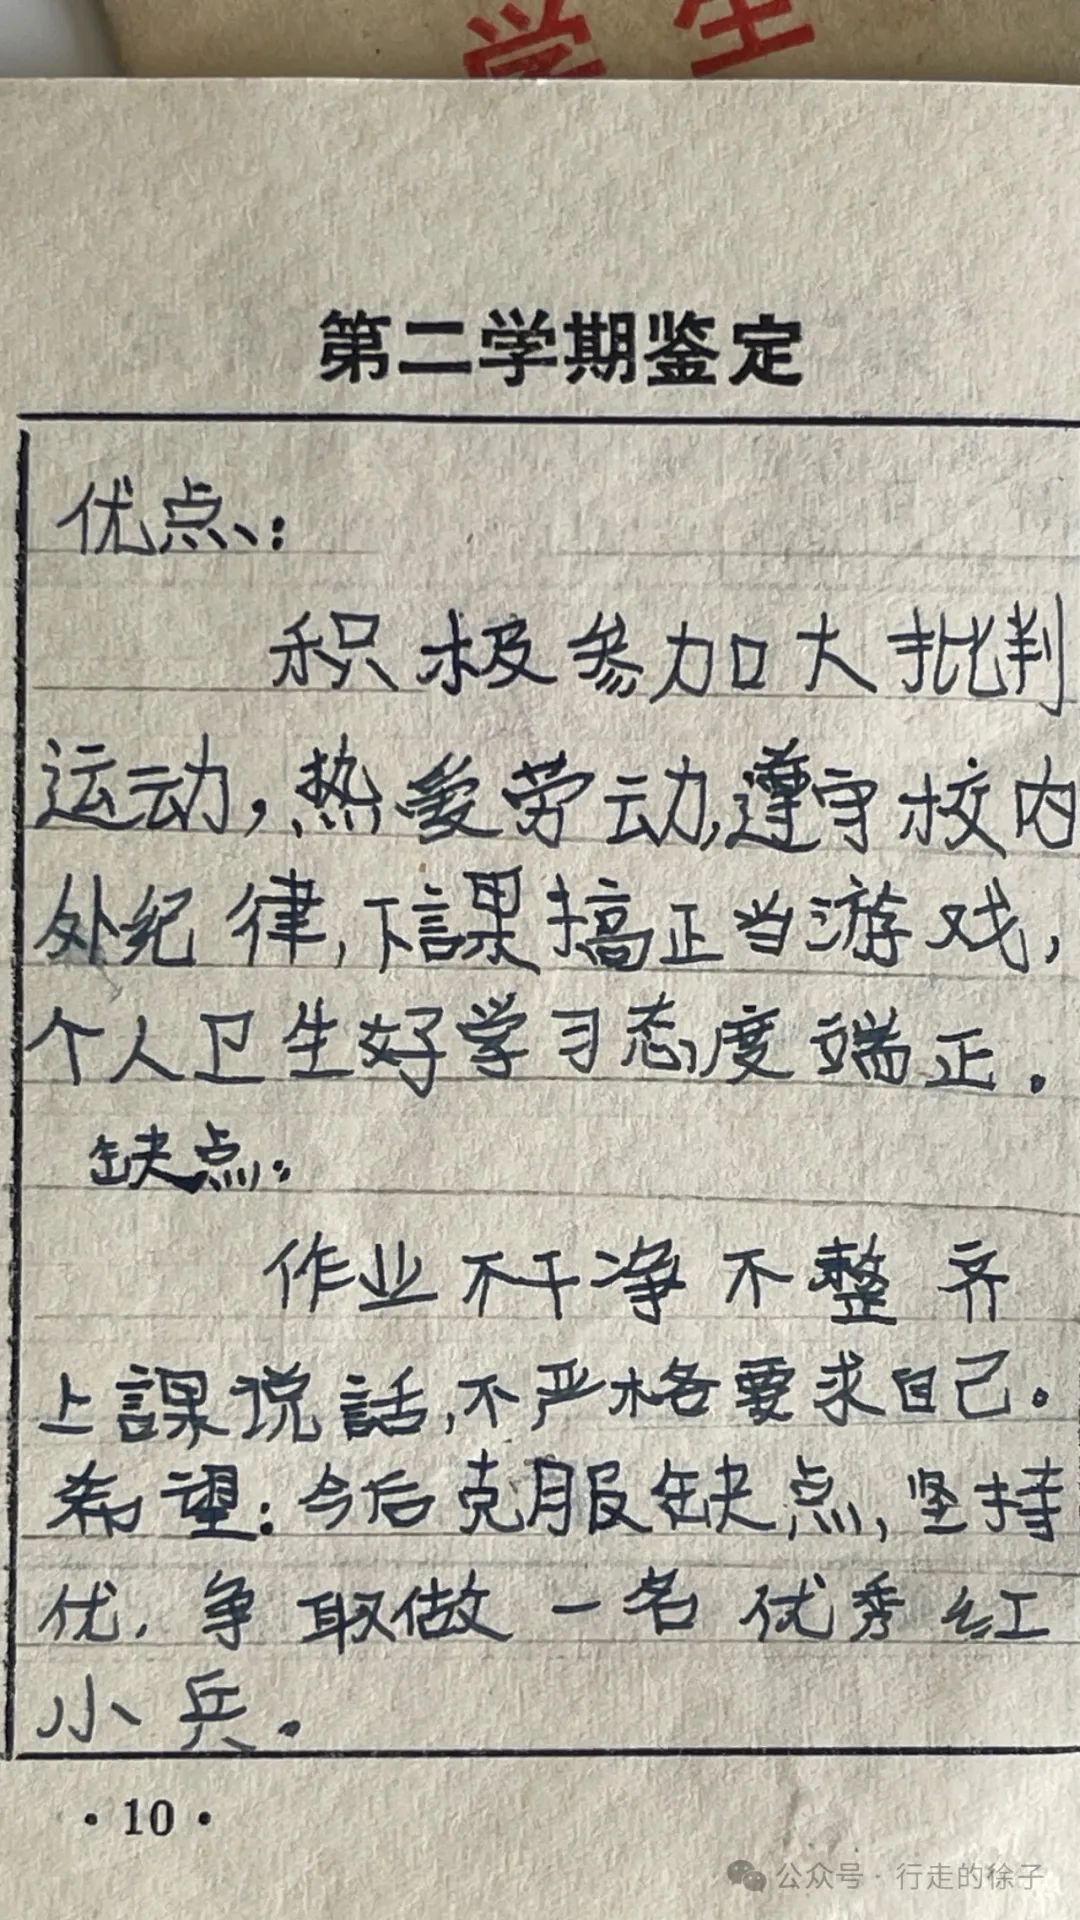 学生
第二学期鉴定
优点、:
积极参加大批判
运动,热爱劳动,遵守校内
外纪律,下課搞正当游戏,
个人卫生好学习态度端正.
缺点:
作业不干净不整齐
上課说話,不严格要求自己。
希望:今后克服缺点,坚持
优.争取做一名优秀红
小兵.
·10·
公众号·行走的徐子